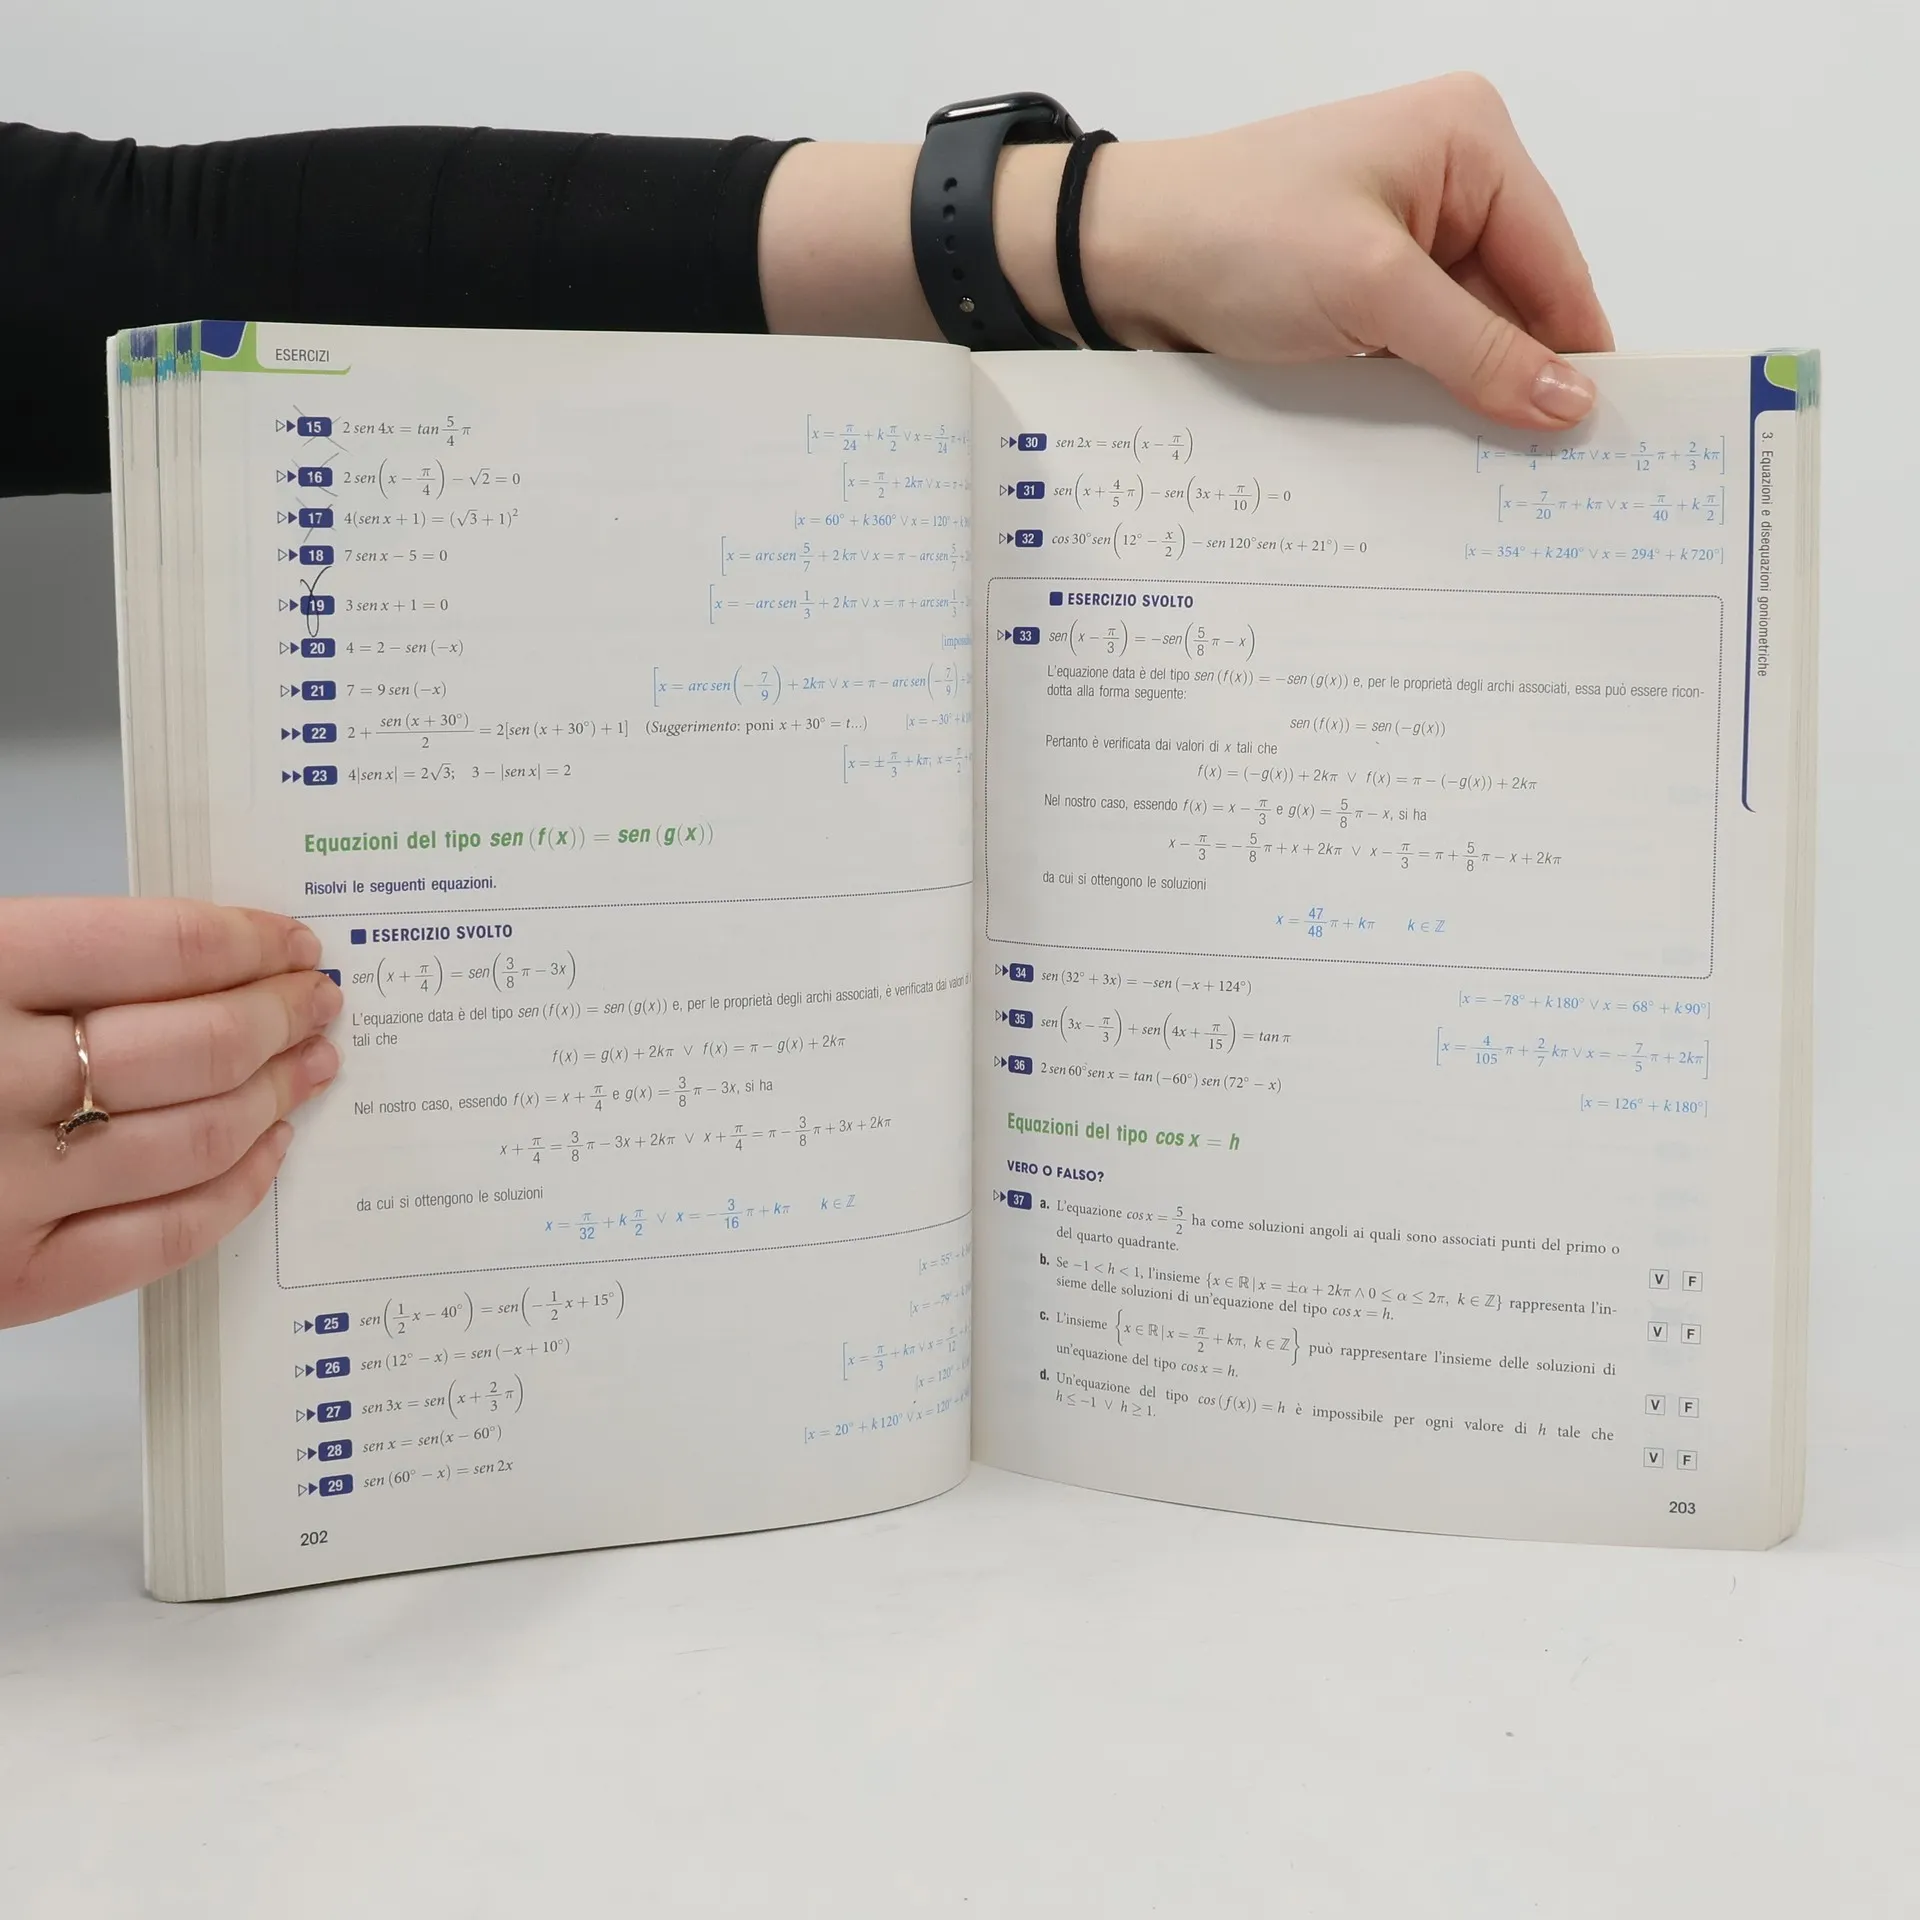 ESERCIZI
15 2 sen 4x = tan 5/4 π [x = π/24 + k π/2 ∨ x = 5/24 π
16 2 sen(x − π/4) − √2 = 0 [x = π/2 + 2kπ ∨ x = π
17 4(sen x + 1) = (√3 + 1)² [x = 60° + k 360° ∨ x = 120°
18 7 sen x − 5 = 0 [x = arc sen 5/7 + 2 kπ ∨ x = π − arc sen 5/7
19 3 sen x + 1 = 0 [x = −arc sen 1/3 + 2 kπ ∨ x = π + arc sen 1/3
20 4 = 2 − sen (−x)
21 7 = 9 sen (−x) [x = arc sen(−7/9) + 2kπ ∨ x = π − arc sen(−7/9)
22 2 + sen (x + 30°)/2 = 2[sen (x + 30°) + 1] (Suggerimento: poni x + 30° = t...) [x = −30°
23 4|sen x| = 2√3; 3 − |sen x| = 2 [x = ± π/3 + kπ; x = π/2
Equazioni del tipo sen (f(x)) = sen (g(x))
Risolvi le seguenti equazioni.
ESERCIZIO SVOLTO
sen(x + π/4) = sen(3/8 π − 3x)
L'equazione data è del tipo sen (f(x)) = sen (g(x)) e, per le proprietà degli archi associati, è verificata dai valori
tali che
f(x) = g(x) + 2kπ ∨ f(x) = π − g(x) + 2kπ
Nel nostro caso, essendo f(x) = x + π/4 e g(x) = 3/8 π − 3x, si ha
x + π/4 = 3/8 π − 3x + 2kπ ∨ x + π/4 = π − 3/8 π + 3x + 2kπ
da cui si ottengono le soluzioni
x = π/32 + k π/2 ∨ x = −3/16 π + kπ k ∈ ℤ
25 sen(1/2 x − 40°) = sen(−1/2 x + 15°) [x = 55°
26 sen (12° − x) = sen (−x + 10°) [x = −79°
27 sen 3x = sen(x + 2/3 π) [x = π/3 + kπ ∨ x = π/12
28 sen x = sen(x − 60°) [x = 120°
29 sen (60° − x) = sen 2x [x = 20° + k 120° ∨ x = 120°
202
30 sen 2x = sen(x − π/4) [x = −π/4 + 2kπ ∨ x = 5/12 π + 2/3 kπ]
31 sen(x + 4/5 π) − sen(3x + π/10) = 0 [x = 7/20 π + kπ ∨ x = π/40 + k π/2]
32 cos 30° sen(12° − x/2) − sen 120° sen (x + 21°) = 0 [x = 354° + k 240° ∨ x = 294° + k 720°]
ESERCIZIO SVOLTO
33 sen(x − π/3) = −sen(5/8 π − x)
L'equazione data è del tipo sen (f(x)) = −sen (g(x)) e, per le proprietà degli archi associati, essa può essere ricon-
dotta alla forma seguente:
sen (f(x)) = sen (−g(x))
Pertanto è verificata dai valori di x tali che
f(x) = (−g(x)) + 2kπ ∨ f(x) = π − (−g(x)) + 2kπ
Nel nostro caso, essendo f(x) = x − π/3 e g(x) = 5/8 π − x, si ha
x − π/3 = −5/8 π + x + 2kπ ∨ x − π/3 = π + 5/8 π − x + 2kπ
da cui si ottengono le soluzioni
x = 47/48 π + kπ k ∈ ℤ
34 sen (32° + 3x) = −sen (−x + 124°) [x = −78° + k 180° ∨ x = 68° + k 90°]
35 sen(3x − π/3) + sen(4x + π/15) = tan π [x = 4/105 π + 2/7 kπ ∨ x = −7/5 π + 2kπ]
36 2 sen 60° sen x = tan (−60°) sen (72° − x) [x = 126° + k 180°]
Equazioni del tipo cos x = h
VERO O FALSO?
37 a. L'equazione cos x = 5/2 ha come soluzioni angoli ai quali sono associati punti del primo o
del quarto quadrante. V F
b. Se −1 < h < 1, l'insieme {x ∈ ℝ | x = ±α + 2kπ ∧ 0 ≤ α ≤ 2π, k ∈ ℤ} rappresenta l'in-
sieme delle soluzioni di un'equazione del tipo cos x = h. V F
c. L'insieme {x ∈ ℝ | x = π/2 + kπ, k ∈ ℤ} può rappresentare l'insieme delle soluzioni di
un'equazione del tipo cos x = h. V F
d. Un'equazione del tipo cos (f(x)) = h è impossibile per ogni valore di h tale che
h ≤ −1 ∨ h ≥ 1. V F
203
3. Equazioni e disequazioni goniometriche